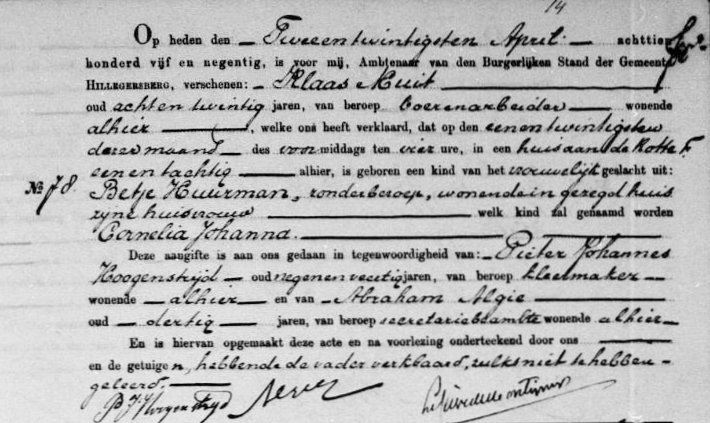 14
Op heden den Tweeentwintigsten April achttien
honderd vijf en negentig, is voor mij, Ambtenaar van den Burgerlijken Stand der Gemeente
HILLEGERSBERG, verschenen: Klaas Muit
oud achtentwintig jaren, van beroep boerenarbeider wonende
alhier, welke ons heeft verklaard, dat op den eenentwintigsten
dezer maand des voormiddags ten vier ure, in een huis aan de Kotte F.
eenentachtig alhier, is geboren een kind van het vrouwelijk geslacht uit:
No 78. Betje Huurman, zonder beroep, wonende in gezegd huis
zijne huisvrouw welk kind zal genaamd worden
Cornelia Johanna.
Deze aangifte is aan ons gedaan in tegenwoordigheid van: Pieter Johannes
Hoogenstrijd oud negenenveertig jaren, van beroep kleermaker
wonende alhier en van Abraham Algie
oud dertig jaren, van beroep secretariebeambte wonende alhier
En is hiervan opgemaakt deze acte en na voorlezing onderteekend door ons
en de getuigen, hebbende de vader verklaard, zulks niet te hebben
geleerd.
P. J. Hoogenstrijd